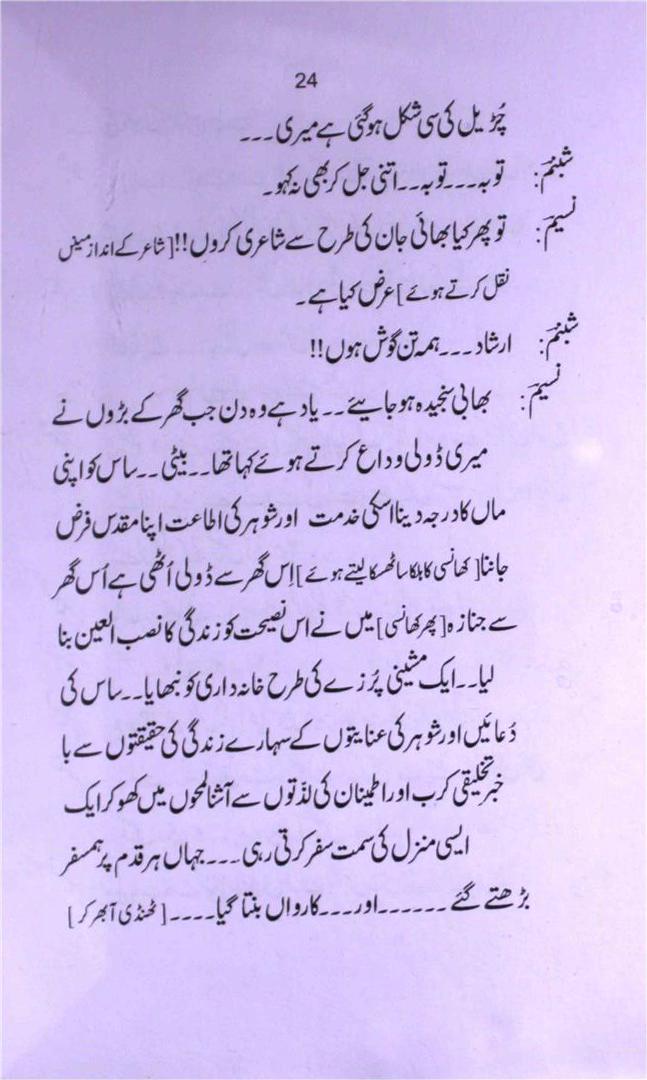 24
چُڑیل کی سی شکل ہوگئی ہے میری ۔۔۔
شبنم: توبہ ۔۔۔ توبہ ۔۔ اتنی جل کر بھی نہ کہو ۔
نسیم: تو پھر کیا بھائی جان کی طرح سے شاعری کروں !! [ شاعر کے انداز میں
نقل کرتے ہوئے ] عرض کیا ہے ۔
شبنم: ارشاد ۔۔۔ ہمہ تن گوش ہوں !!
نسیم: بھابی سنجیدہ ہو جایئے ۔۔ یاد ہے وہ دن جب گھر کے بڑوں نے
میری ڈولی وداع کرتے ہوئے کہا تھا ۔۔ بیٹی ۔۔ ساس کو اپنی
ماں کا درجہ دینا اسکی خدمت اور شوہر کی اطاعت اپنا مقدس فرض
جاننا [ کھانسی کا ہلکا سا ٹھسکا لیتے ہوئے ] اِس گھر سے ڈولی اُٹھی ہے اُس گھر
سے جنازہ [ پھر کھانسی ] میں نے اس نصیحت کو زندگی کا نصب العین بنا
لیا ۔۔ ایک مشینی پُرزے کی طرح خانہ داری کو نبھایا ۔۔ ساس کی
دُعائیں اور شوہر کی عنایتوں کے سہارے زندگی کی حقیقتوں سے با
خبر تخلیقی کرب اور اطینان کی لذّتوں سے آشنا لمحوں میں کھو کر ایک
ایسی منزل کی سمت سفر کرتی رہی ۔۔۔ جہاں ہر قدم پر ہمسفر
بڑھتے گئے ۔۔۔۔۔۔ اور ۔۔۔ کارواں بنتا گیا ۔۔۔۔ [ ٹھنڈی آہ بھر کر ]